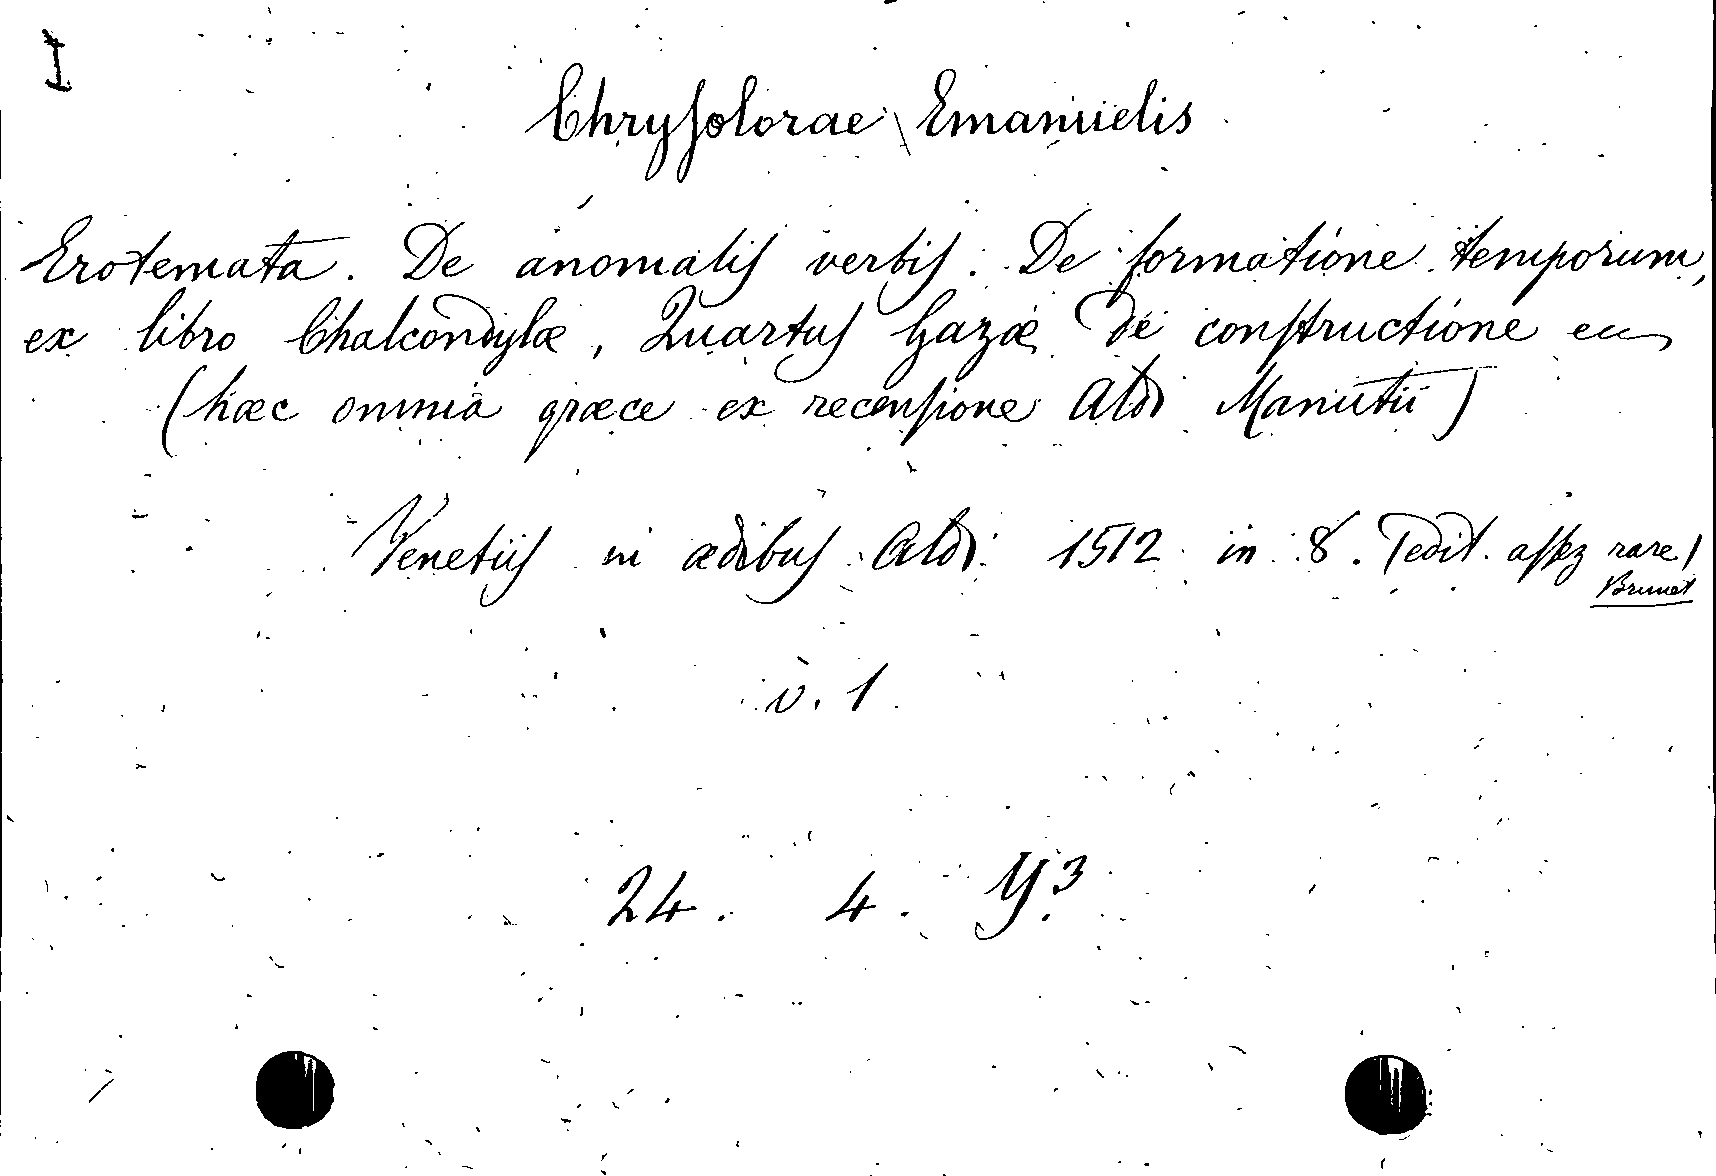 I
Chrysolorae Emanuelis
Erotemata. De anomalis verbis. De formatione temporum,
ex libro Chalcondylæ, Quartus Gazæ De constructione etc
(hæc omnia græce ex recensione Aldi Manutii)
Venetiis in ædibus Aldi 1512 in 8. (edit. assez rare)
Brunet
v. 1
24. 4. Y.3